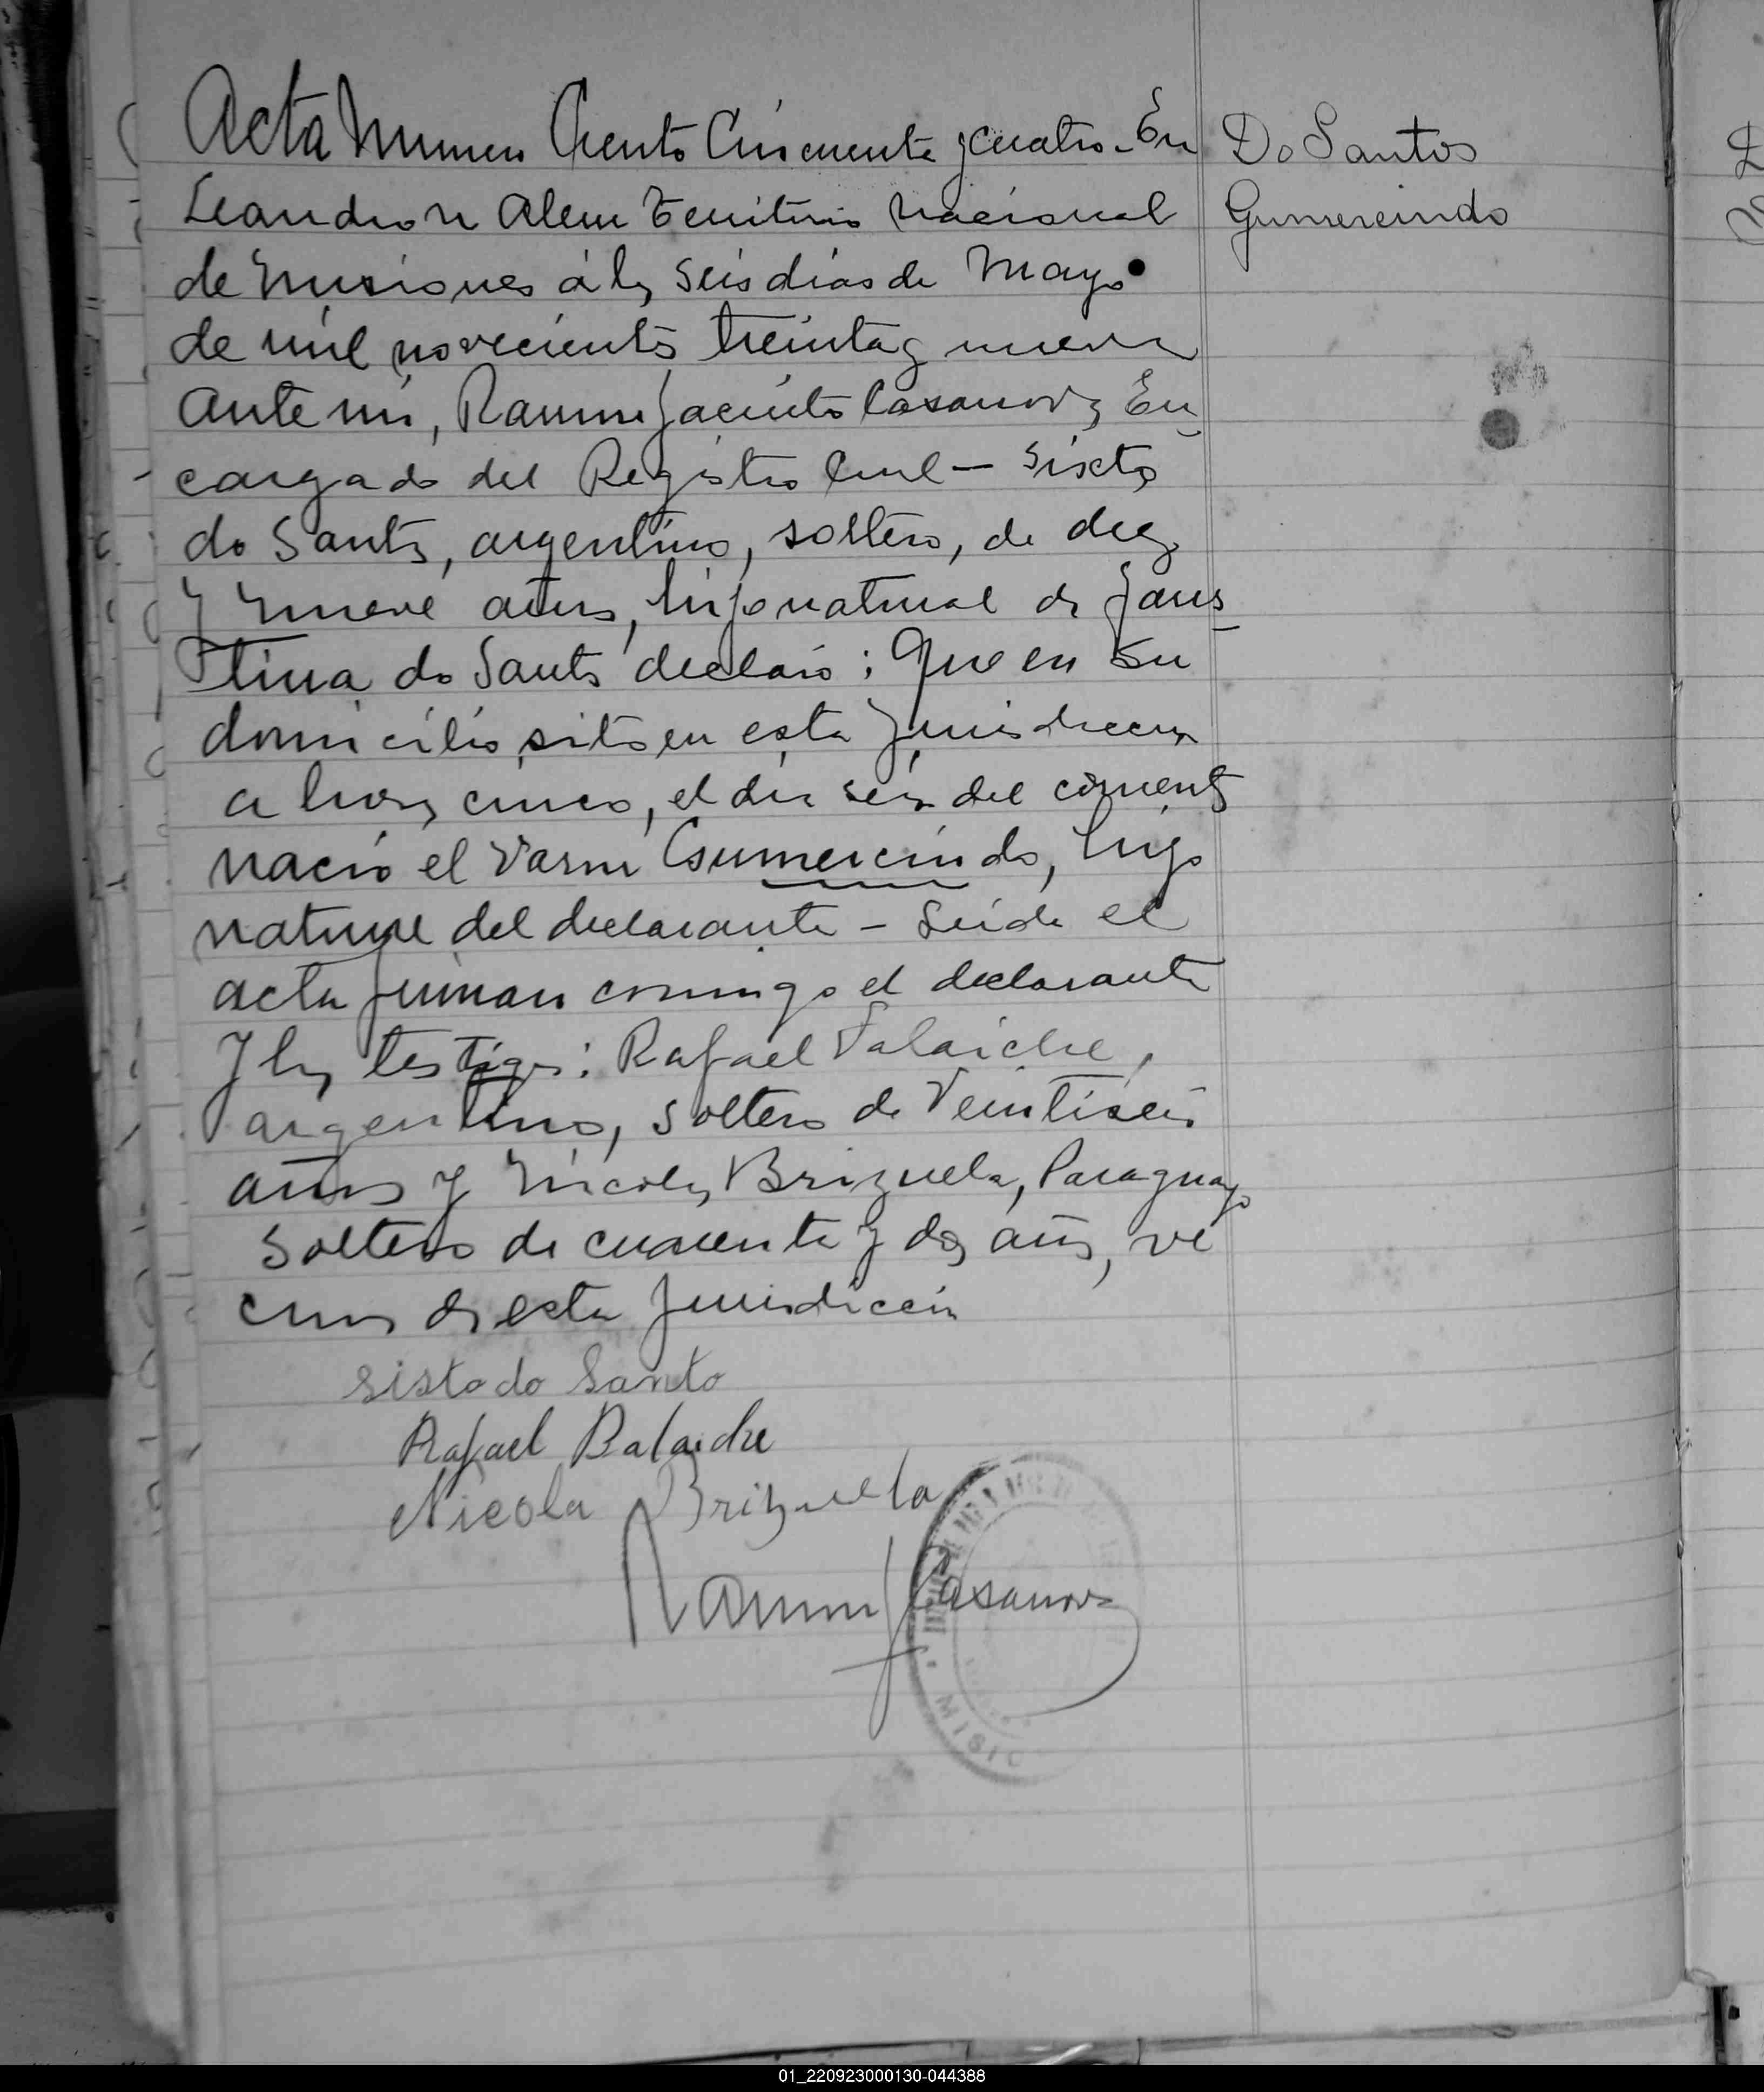 Acta Numero Ciento Cincuenta y cuatro - En
Leandro N Alem Territorio Nacional
de Misiones á los seis dias de Mayo
de mil novecientos treinta y nueve
Ante mi, Ramon Jacinto Casanova En
cargado del Registro Civil - Sixto
do Santos, argentino, soltero, de diez
y nueve años, hijo natural de Faus
tina do Santos declaró: Que en su
domicilio, sito en esta Jurisdiccion
a horas cinco, el dia seis del corriente
nació el Varon Gumercindo, hijo
natural del declarante - Leida el
acta firman conmigo el declarante
y los testigos: Rafael Valaiche,
argentino, soltero de Veintiseis
años y Nicolas Brizuela, Paraguayo
soltero de cuarenta y dos años, ve
cinos de esta Jurisdiccion
Sisto do Santo
Rafael Balaiche
Nicola Brizuela
Ramon J Casanova
MISIO
Do Santos
Gumercindo
01_220923000130-044388